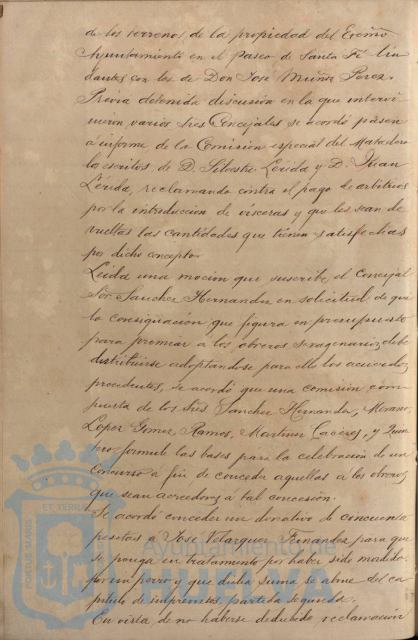 de los terrenos de la propiedad del Excmo
Ayuntamiento en el Paseo de Santa Fé lin
dantes con los de Don José Muñoz Perez.
Previa detenida discusion en la que intervi
nieron varios Sres Concejales se acordó pasen
a informe de la Comision especial del Matadero
los escritos de D. Silvestre Lérida y D. Juan
Lérida, reclamando contra el pago de arbitrios
por la introduccion de vísceras y que les sean de
vueltas las cantidades que tienen satisfechas
por dicho concepto
Leida una mocion que suscribe el Concejal
Sor. Sanchez Hernandez en solicitud de que
la consignacion que figura en presupuesto
para premiar a los obreros sexagenarios, debe
distribuirse adoptandose para ello los acuerdos
procedentes, se acordó que una comision com
puesta de los Sres Sanchez Hernandez, Moreno
Lopez Gomez Ramos, Martinez Caceres, y Quin
tero formule las bases para la celebracion de un
Concurso a fin de conceder aquellas a los obreros,
que sean acreedores a tal concesion.
Se acordó conceder un donativo de cincuenta
pesetas a José Velazquez Fernandez para que
se ponga en tratamiento por haber sido mordido
por un perro y que dicha suma se abone del ca
pitulo de imprevistos, partida segunda.
En vista de no haberse deducido reclamación
PORTUS MARIS
ET TERRAE
Ayuntamiento de